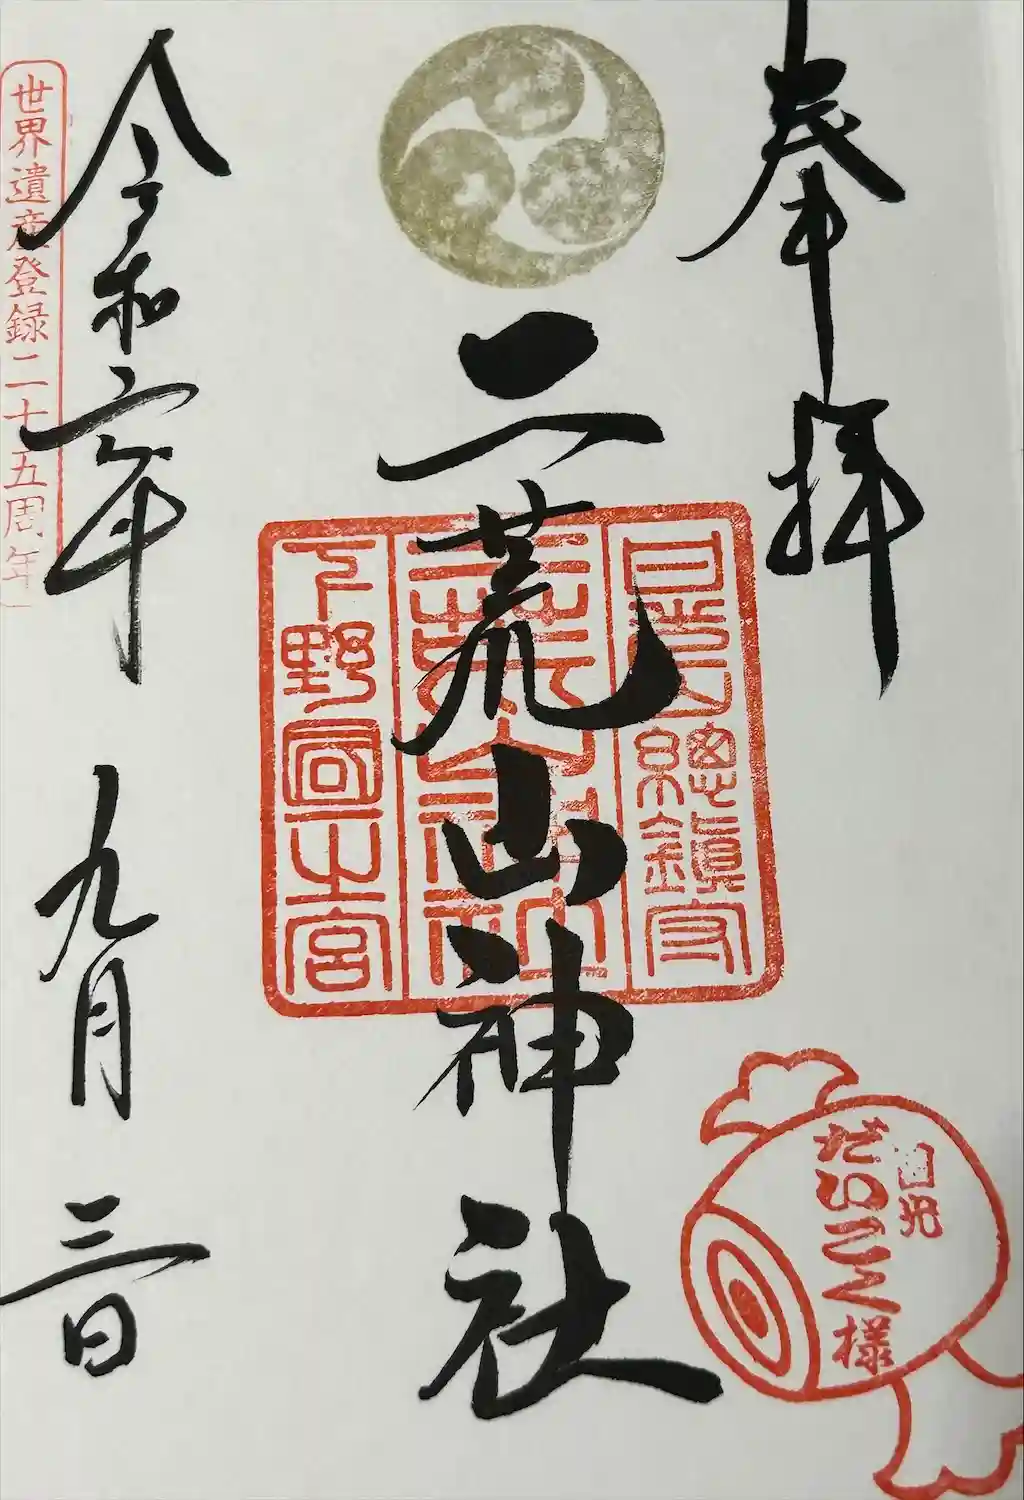 奉拝
日光
だいこく様
日光総鎮守
二荒山神社
二荒山神社
下野國一宮
令和二年 九月 三日
世界遺産登録二十五周年